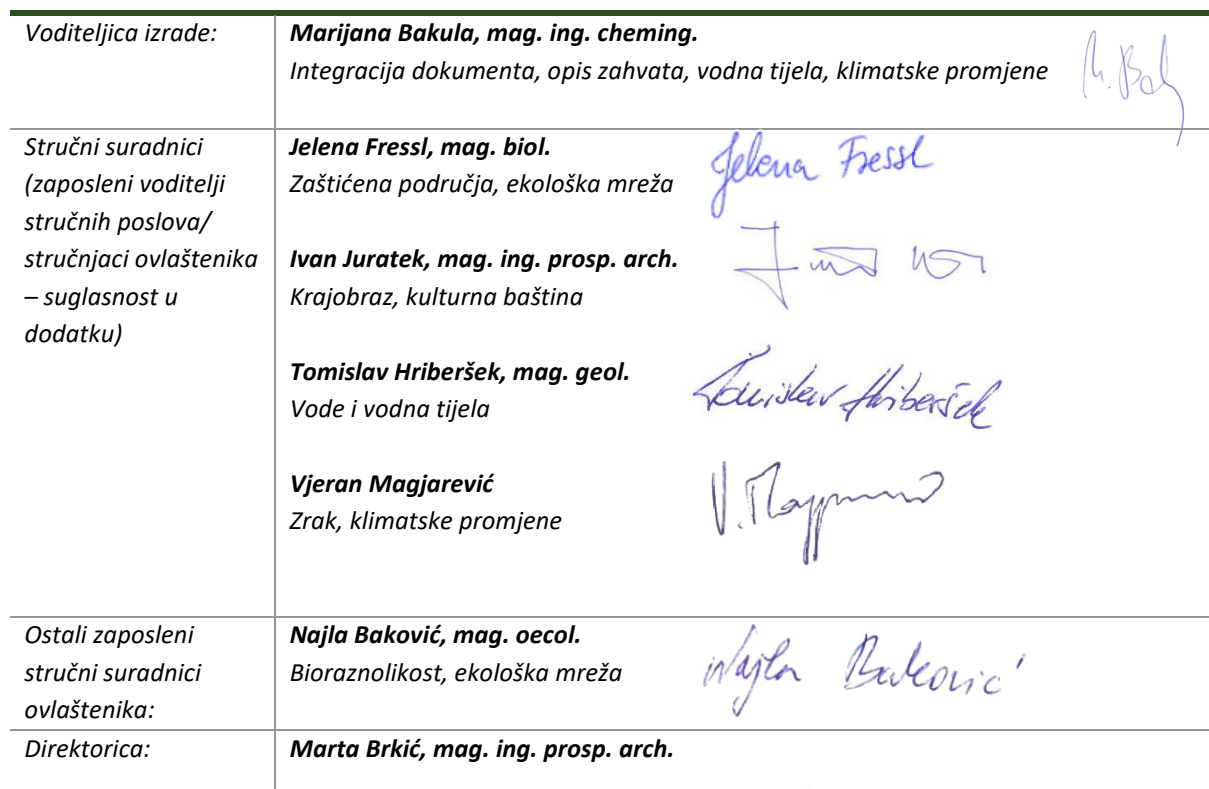 Voditeljica izrade:
Marijana Bakula, mag. ing. cheming.
Integracija dokumenta, opis zahvata, vodna tijela, klimatske promjene
Stručni suradnici
(zaposleni voditelji
stručnih poslova/
stručnjaci ovlaštenika
– suglasnost u
dodatku)
Jelena Fressl, mag. biol.
Zaštićena područja, ekološka mreža
Jelena Fressl
Ivan Juratek, mag. ing. prosp. arch.
Krajobraz, kulturna baština
Tomislav Hriberšek, mag. geol.
Vode i vodna tijela
Tomislav Hriberšek
Vjeran Magjarević
Zrak, klimatske promjene
Ostali zaposleni
stručni suradnici
ovlaštenika:
Najla Baković, mag. oecol.
Bioraznolikost, ekološka mreža
Najla Baković
Direktorica:
Marta Brkić, mag. ing. prosp. arch.